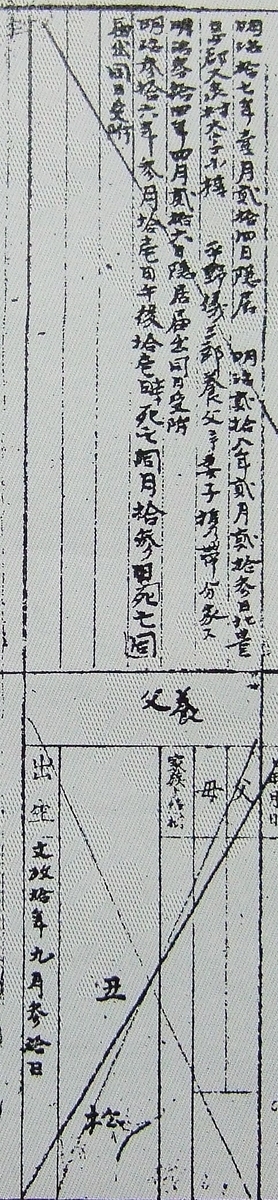 明治拾七年壹月貳拾四日隠居 明治貳拾八年貳月貳拾参日比企
郡大河村大字小横 平野儀三郎養父ニ妻子携帯分家ス
明治参拾四年四月貳拾六日隠居届出同日受附
明治参拾六年参月拾壱日午後拾壱時死亡同月拾参日死亡届
出同日受附
養父
父
母
家族トノ続柄
丑松
出生 文政拾年九月参拾日